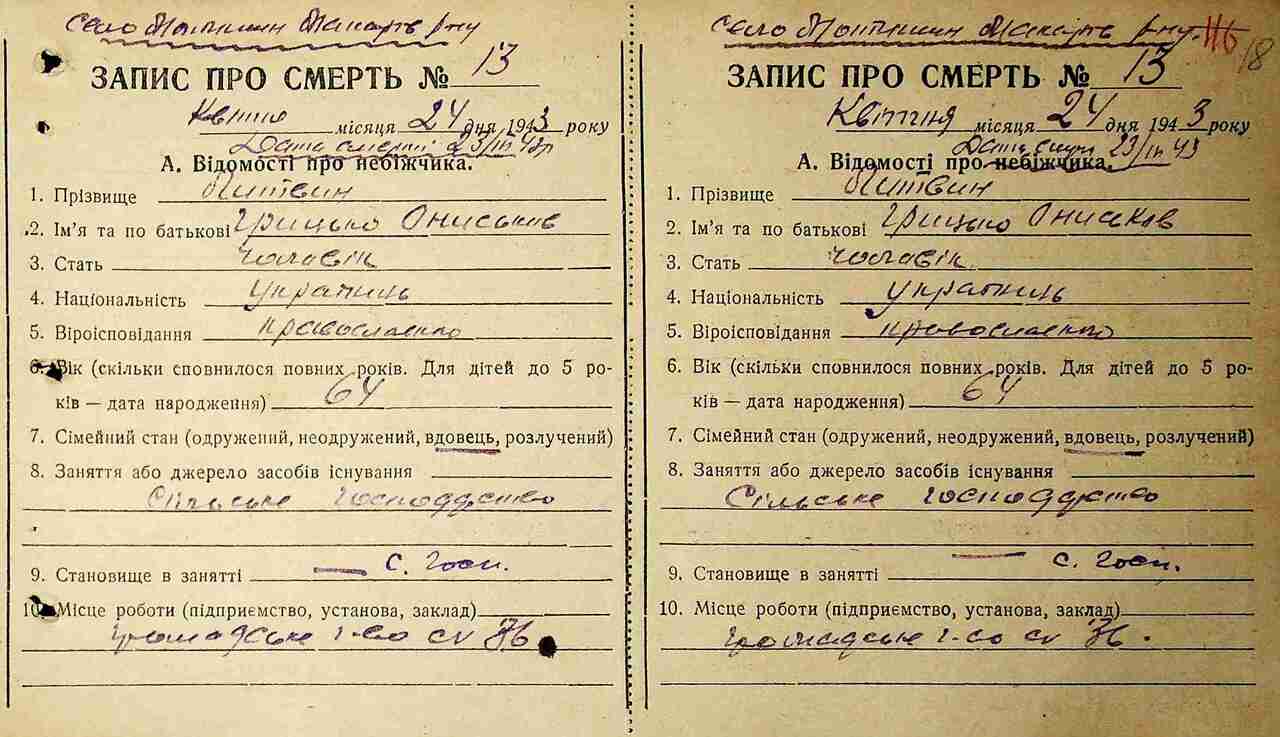 Село Мотижин Макарів р-ну
ЗАПИС ПРО СМЕРТЬ № 13
Квітня місяця 24 дня 1943 року
Дата смерті 23/IV 43р
А. Відомості про небіжчика.
1. Прізвище Литвин
2. Ім'я та по батькові Грицько Ониськов
3. Стать чоловік
4. Національність українець
5. Віроісповідання православно
6. Вік (скільки сповнилося повних років. Для дітей до 5 ро-
ків — дата народження) 64
7. Сімейний стан (одружений, неодружений, вдовець, розлучений)
8. Заняття або джерело засобів існування
Сільське господарство
9. Становище в занятті — с. госп.
10. Місце роботи (підприємство, установа, заклад)
Громадське г-во
Село Мотижин Макарів р-ну. 18
ЗАПИС ПРО СМЕРТЬ № 13
Квітня місяця 24 дня 1943 року
Дата смер 23/IV 43
А. Відомості про небіжчика.
1. Прізвище Литвин
2. Ім'я та по батькові Грицько Ониськов
3. Стать чоловік
4. Національність українець
5. Віроісповідання православно
6. Вік (скільки сповнилося повних років. Для дітей до 5 ро-
ків — дата народження) 64
7. Сімейний стан (одружений, неодружений, вдовець, розлучений)
8. Заняття або джерело засобів існування
Сільське господарство
9. Становище в занятті — с. госп.
10. Місце роботи (підприємство, установа, заклад)
Громадське г-во